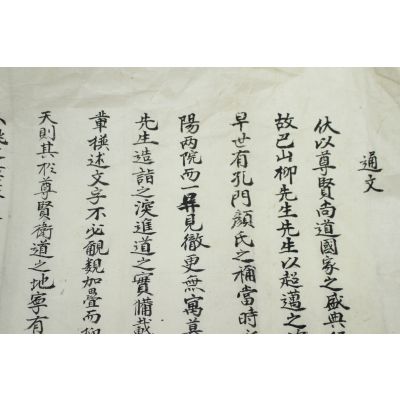 通文
伏以尊賢尚道國家之盛典
故巴山柳先生先生以超邁之
早世有孔門顔氏之稱當時
陽兩院而一屛見徹更無寓慕
先生造詣之深進道之實備載
輩樣述文字不必覼觀加疊而
天則其於尊賢衛道之地寧有